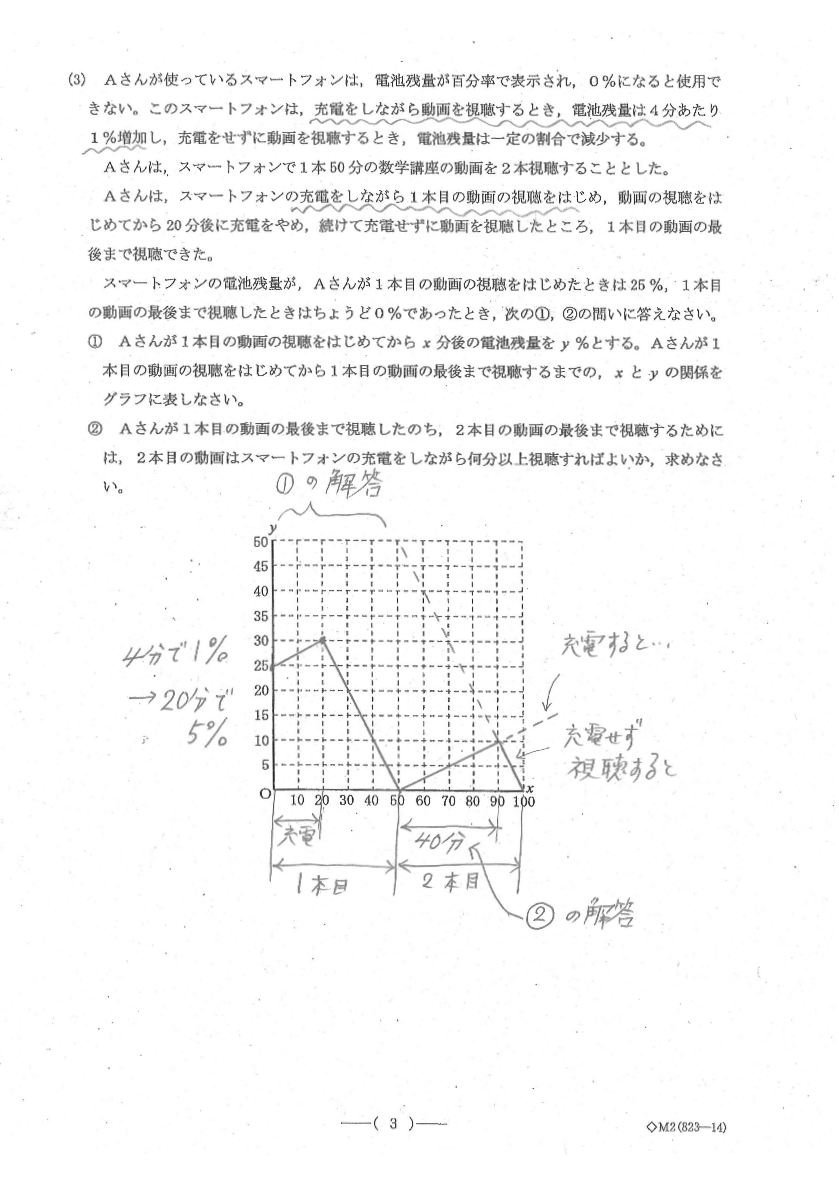 (3) Aさんが使っているスマートフォンは，電池残量が百分率で表示され，0％になると使用で
きない。このスマートフォンは，充電をしながら動画を視聴するとき，電池残量は4分あたり
1％増加し，充電をせずに動画を視聴するとき，電池残量は一定の割合で減少する。
Aさんは，スマートフォンで1本50分の数学講座の動画を2本視聴することとした。
Aさんは，スマートフォンの充電をしながら1本目の動画の視聴をはじめ，動画の視聴をは
じめてから20分後に充電をやめ，続けて充電せずに動画を視聴したところ，1本目の動画の最
後まで視聴できた。
スマートフォンの電池残量が，Aさんが1本目の動画の視聴をはじめたときは25％，1本目
の動画の最後まで視聴したときはちょうど0％であったとき，次の①，②の問いに答えなさい。
① Aさんが1本目の動画の視聴をはじめてから x 分後の電池残量を y ％とする。Aさんが1
本目の動画の視聴をはじめてから1本目の動画の最後まで視聴するまでの，x と y の関係を
グラフに表しなさい。
② Aさんが1本目の動画の最後まで視聴したのち，2本目の動画の最後まで視聴するために
は，2本目の動画はスマートフォンの充電をしながら何分以上視聴すればよいか，求めなさ
い。
①の解答
y
50
45
40
35
30
25
20
15
10
5
O
10 20 30 40 50 60 70 80 90 100
x
4分で1％
→20分で
5％
充電すると…
充電せず
視聴すると
充電
40分
1本目
2本目
②の解答
—( 3 )—
◇M2(823—14)